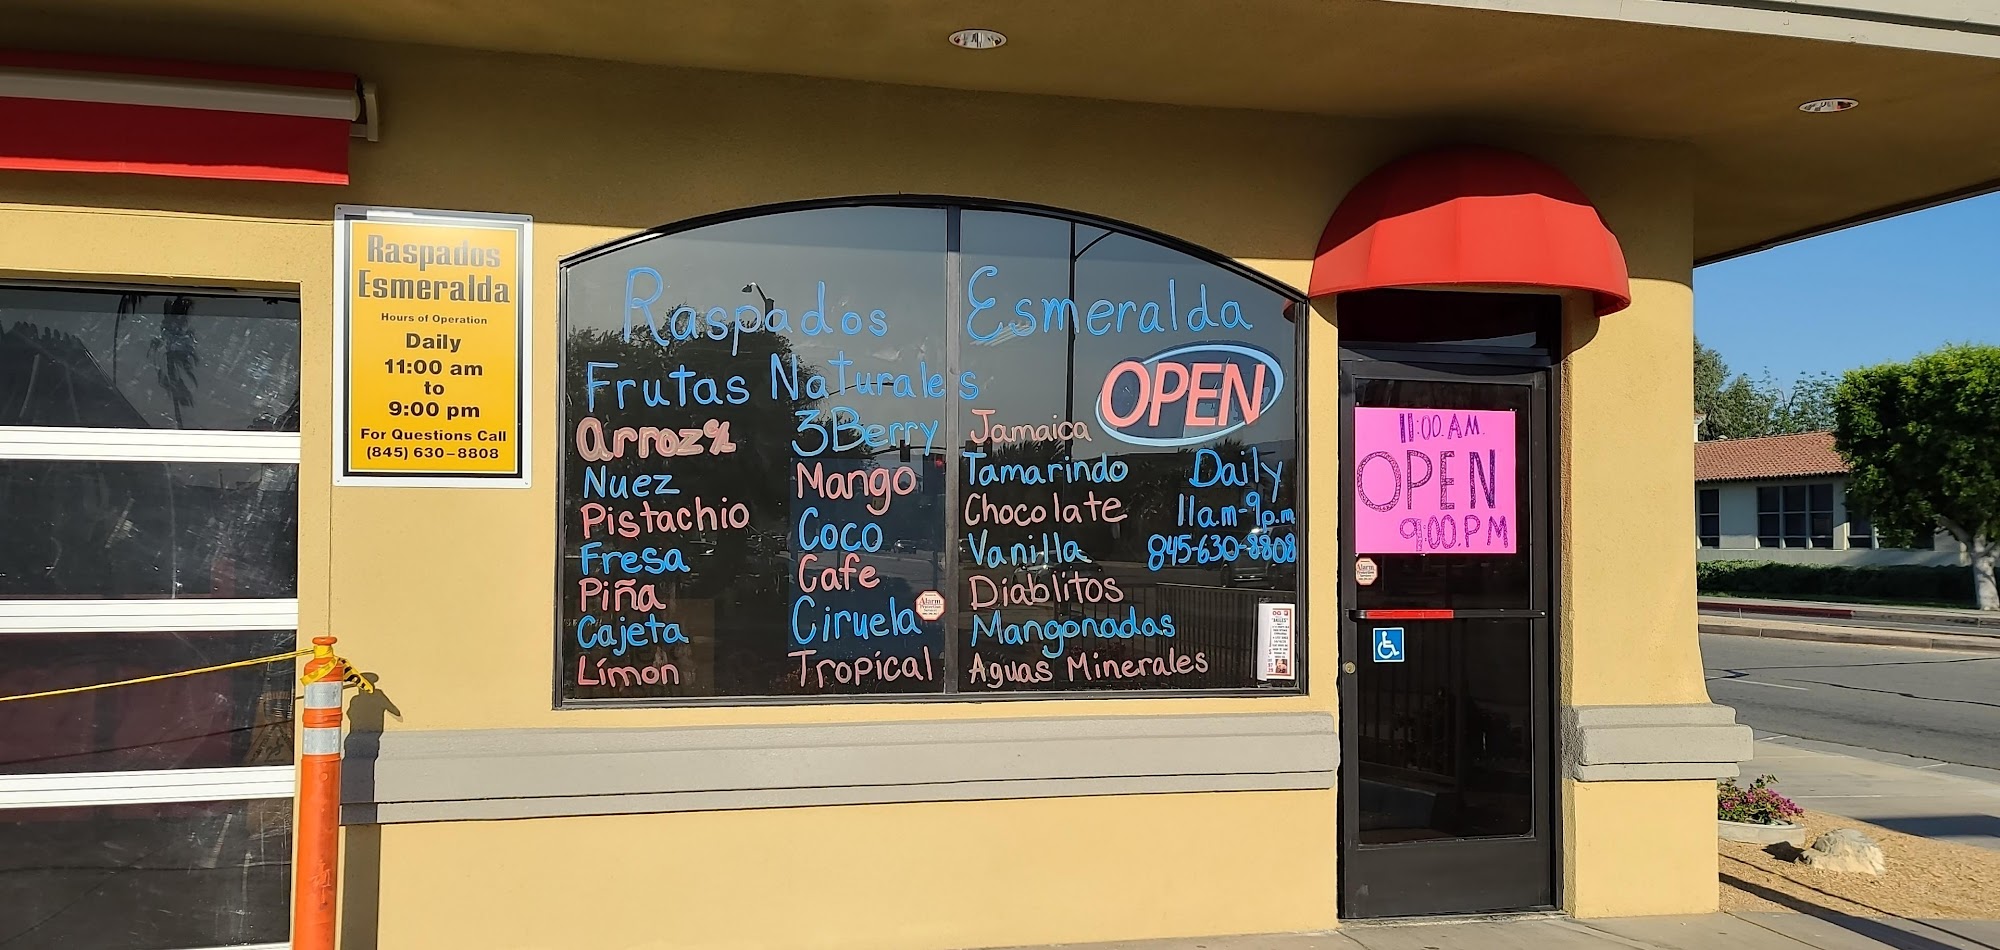 Raspados
Esmeralda
Hours of Operation
Daily
11:00 am
to
9:00 pm
For Questions Call
(845) 630-8808
Raspados Esmeralda
Frutas Naturales
Arroz
Nuez
Pistachio
Fresa
Piña
Cajeta
Límon
3Berry
Mango
Coco
Cafe
Ciruela
Tropical
Jamaica
Tamarindo
Chocolate
Vanilla
Diablitos
Mangonadas
Aguas Minerales
OPEN
Daily
11am-9p.m
845-630-8808
Alarm
11:00.A.M.
OPEN
9:00.P.M
Alarm